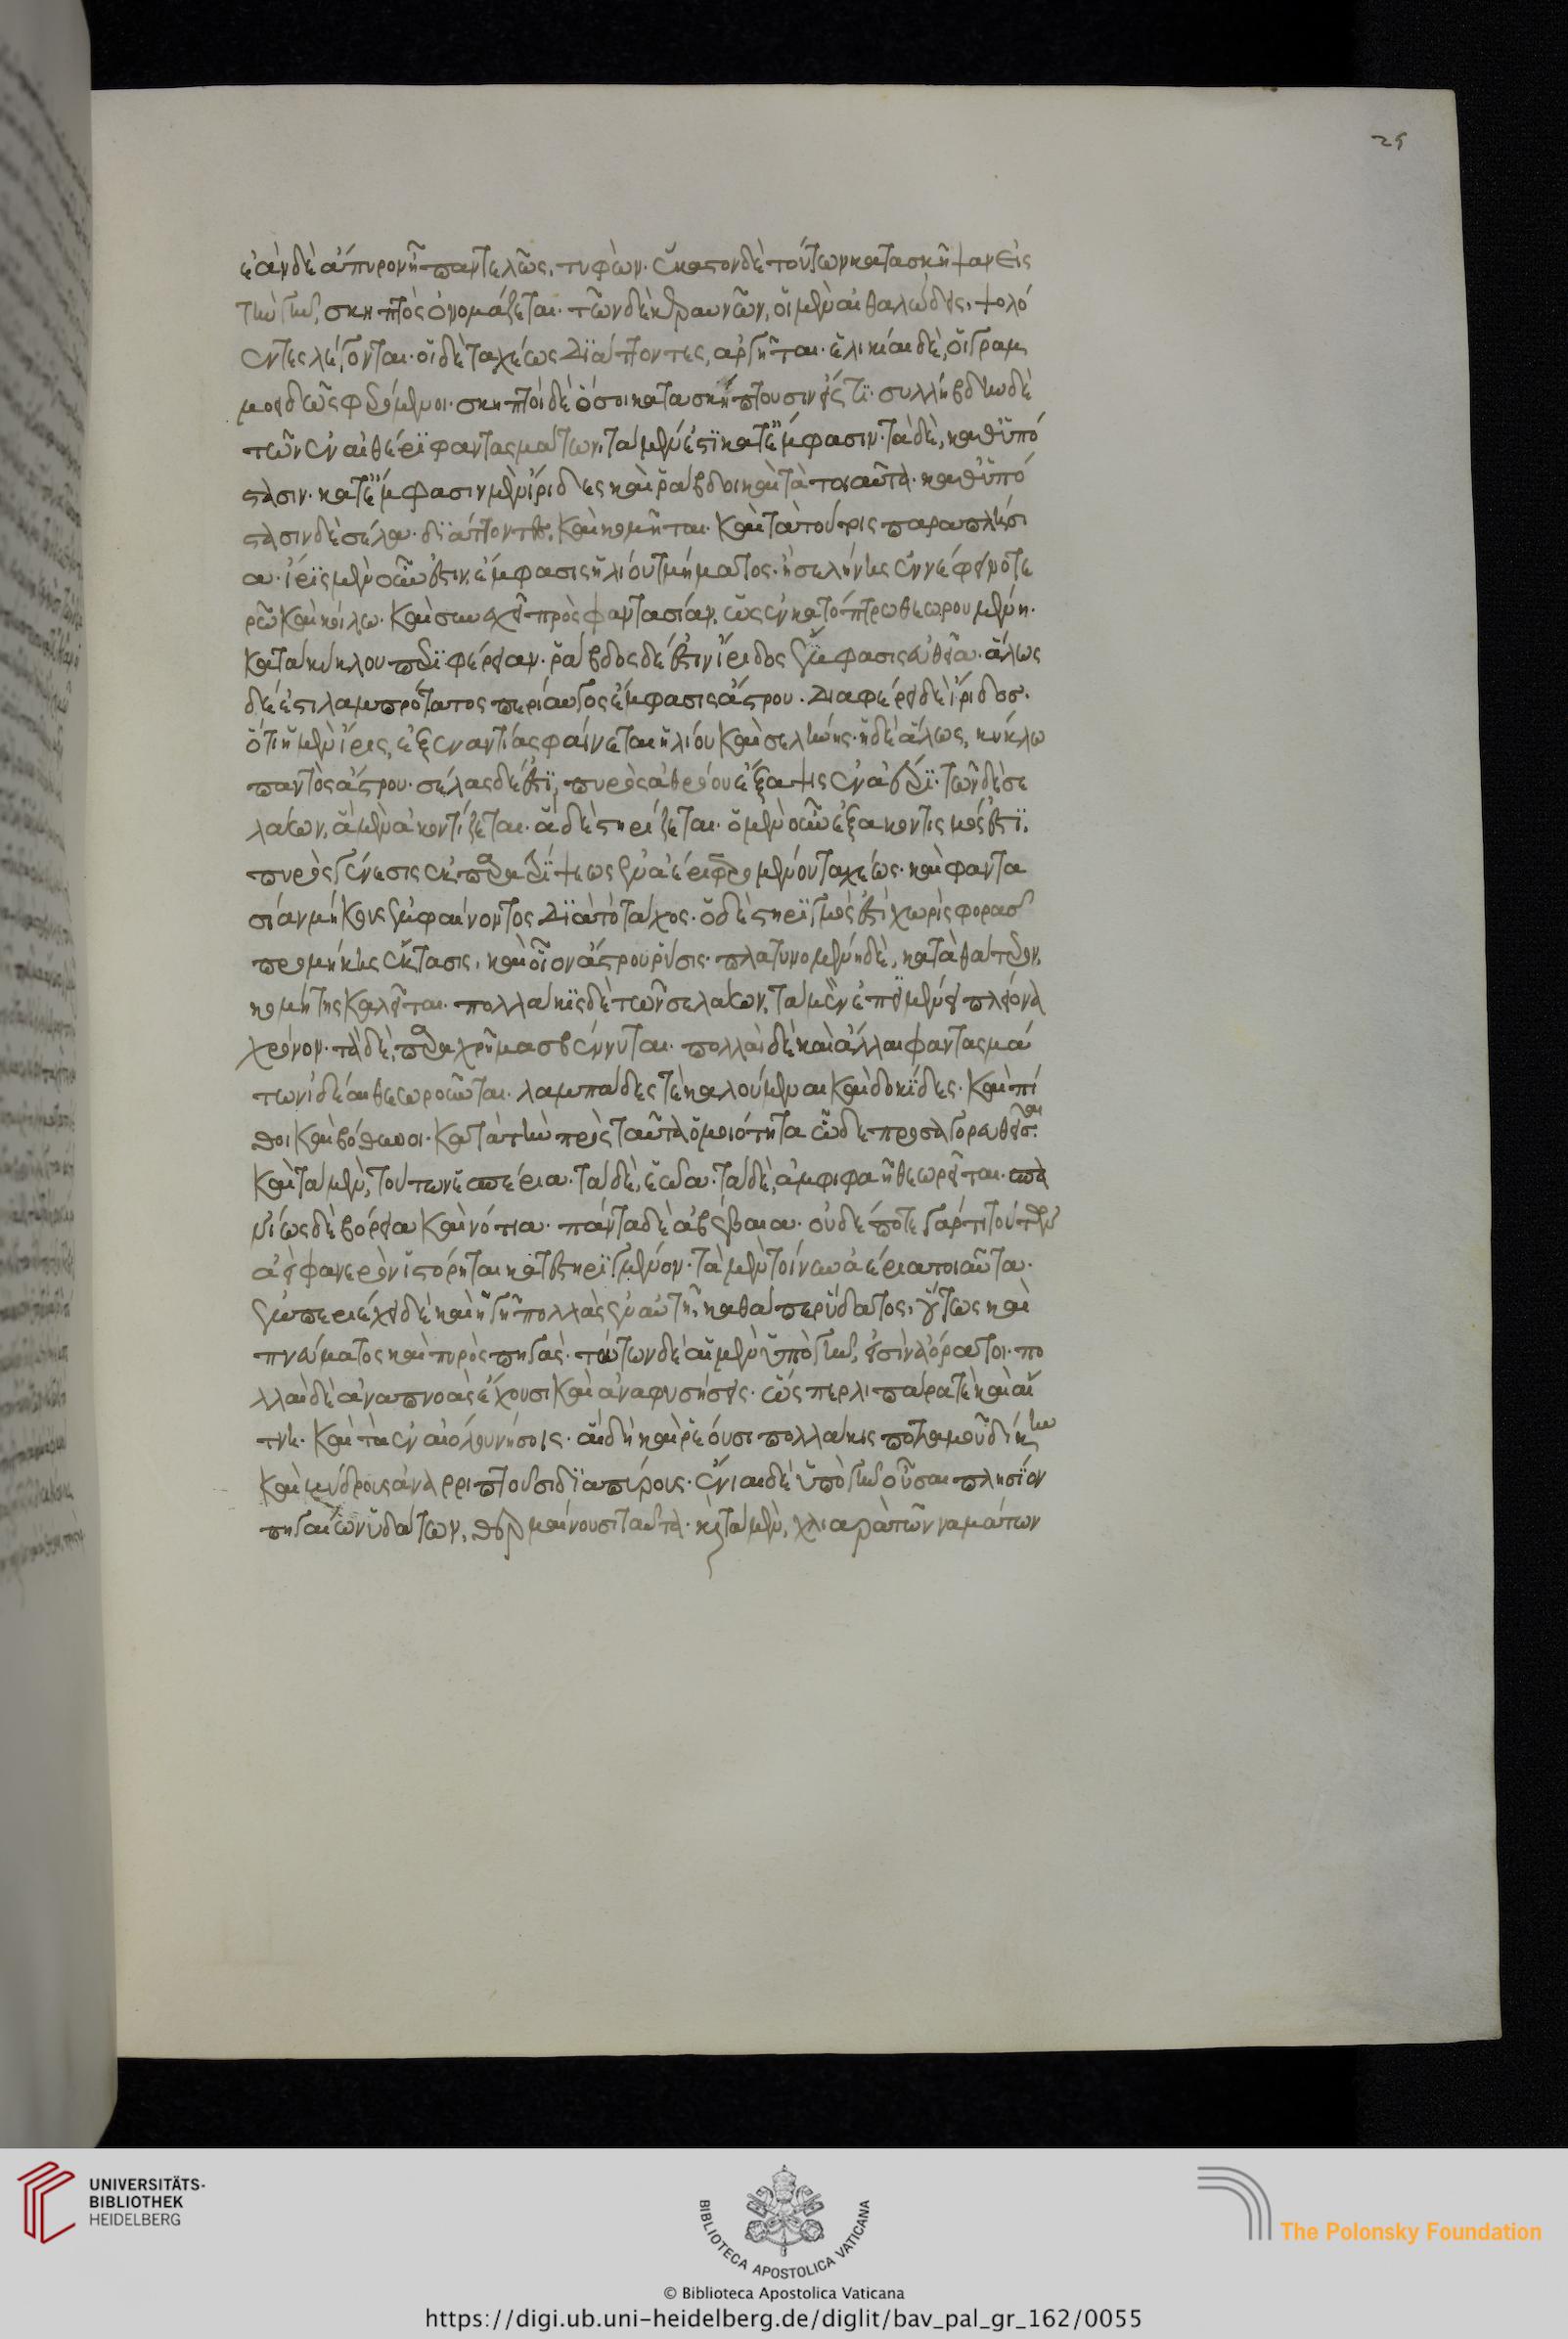 25
ἐὰν δὲ ἄπυρον ἦ παντελῶς, τυφών. ἕκαστον δὲ τούτων κατασκῆψαν εἰς
τὴν γῆν, σκηπτὸς ὀνομάζεται. τῶν δὲ κεραυνῶν, οἱ μὲν αἰθαλώδεις, ψολό
εντες λέγονται. οἱ δὲ ταχέως διάττοντες, ἀργῆται. ἑλικίαι δὲ, οἱ γραμ
μοειδῶς φερόμενοι. σκηπτοὶ δὲ ὅσοι κατασκήπτουσιν εἴς τι. συλλήβδην δὲ
τῶν ἐν αἰθέρι φαντασμάτων, τὰ μέν ἐστι κατ' ἔμφασιν. τὰ δὲ, καθ' ὑπό
στασιν. κατ' ἔμφασιν μὲν ἴριδες καὶ ῥάβδοι καὶ τὰ τοιαῦτα. καθ' ὑπό
στασιν δὲ σέλα. διάττοντες. καὶ κομῆται. καὶ τὰ τούτοις παραπλήσι
α. ἶρις μὲν οὖν ἐστιν, ἔμφασις ἡλίου τμήματος. ἢ σελήνης ἐν νέφει νοτε
ρῶ καὶ κοίλω. καὶ συνεχεῖ πρὸς φαντασίαν, ὡς ἐν κατόπτρω θεωρουμένη.
κατὰ κύκλου περιφέρειαν. ῥάβδος δέ ἐστιν ἴριδος ἔμφασις εὐθεῖα. ἅλως
δέ ἐστι λαμπρότατος περίαυγος ἔμφασις ἄστρου. διαφέρει δὲ ἴριδος.
ὅτι ἡ μὲν ἶρις, ἐξ ἐναντίας φαίνεται ἡλίου καὶ σελήνης. ἡ δὲ ἅλως, κύκλω
παντὸς ἄστρου. σέλας δέ ἐστι, πυρὸς ἀθρόου ἔξαψις ἐν ἀέρι. τῶν δὲ σε
λάων, ἃ μὲν ἀκοντίζεται. ἃ δὲ στηρίζεται. ὁ μὲν οὖν ἐξακοντισμός ἐστι.
πυρὸς γένεσις ἐκ παρατρίψεως ἐν ἀέρι φερομένου ταχέως. καὶ φαντα
σίαν μήκους ἐμφαίνοντος διὰ τὸ τάχος. ὁ δὲ στηριγμός ἐστι χωρὶς φορᾶς
προμήκης ἔκτασις, καὶ οἷον ἄστρου ῥύσις. πλατυνομένη δὲ, κατὰ θάτερον,
κομήτης καλεῖται. πολλάκις δὲ τῶν σελάων, τὰ μὲν ἐπιμένει πλείονα
χρόνον. τὰ δὲ, παραχρῆμα σβέννυται. πολλαὶ δὲ καὶ ἄλλαι φαντασμά
των ἰδέαι θεωροῦνται. λαμπάδες τε καλούμεναι καὶ δοκίδες. καὶ πί
θοι καὶ βόθυνοι. κατὰ τὴν πρὸς ταῦτα ὁμοιότητα ὧδε προσαγορευθεῖσαι.
καὶ τὰ μὲν, τούτων ἑσπέρια. τὰ δὲ, ἑῶα. τὰ δὲ, ἀμφιφαῆ θεωρεῖται. σπα
νίως δὲ βόρεια καὶ νότια. πάντα δὲ ἀβέβαια. οὐδέποτε γάρ τι τούτων
ἀεὶ φανερὸν ἱστόρηται κατεστηριγμένον. τὰ μὲν τοίνυν ἀέρια τοιαῦτα.
ἐμπεριέχει δὲ καὶ ἡ γῆ πολλὰς ἐν αὑτῆ, καθάπερ ὕδατος, οὕτως καὶ
πνεύματος καὶ πυρὸς πηγάς. τούτων δὲ αἱ μὲν ὑπὸ γῆν, εἰσὶν ἀόρατοι. πο
λλαὶ δὲ ἀναπνοὰς ἔχουσι καὶ ἀναφυσήσεις. ὥσπερ λιπάρα τε καὶ αἴ
τνη. καὶ τὰ ἐν αἰόλου νήσοις. αἳ δὴ καὶ ῥέουσι πολλάκις ποταμοῦ δίκην
καὶ μύδρους ἀναρριπτοῦσι διαπύρους. ἔνιαι δὲ ὑπὸ γῆν οὖσαι πλησίον
πηγαίων ὑδάτων, θερμαίνουσι ταῦτα. καὶ τὰ μὲν, χλιαρὰ τῶν ναμάτων
UNIVERSITÄTS-
BIBLIOTHEK
HEIDELBERG
BIBLIOTECA APOSTOLICA VATICANA
The Polonsky Foundation
© Biblioteca Apostolica Vaticana
https://digi.ub.uni-heidelberg.de/diglit/bav_pal_gr_162/0055